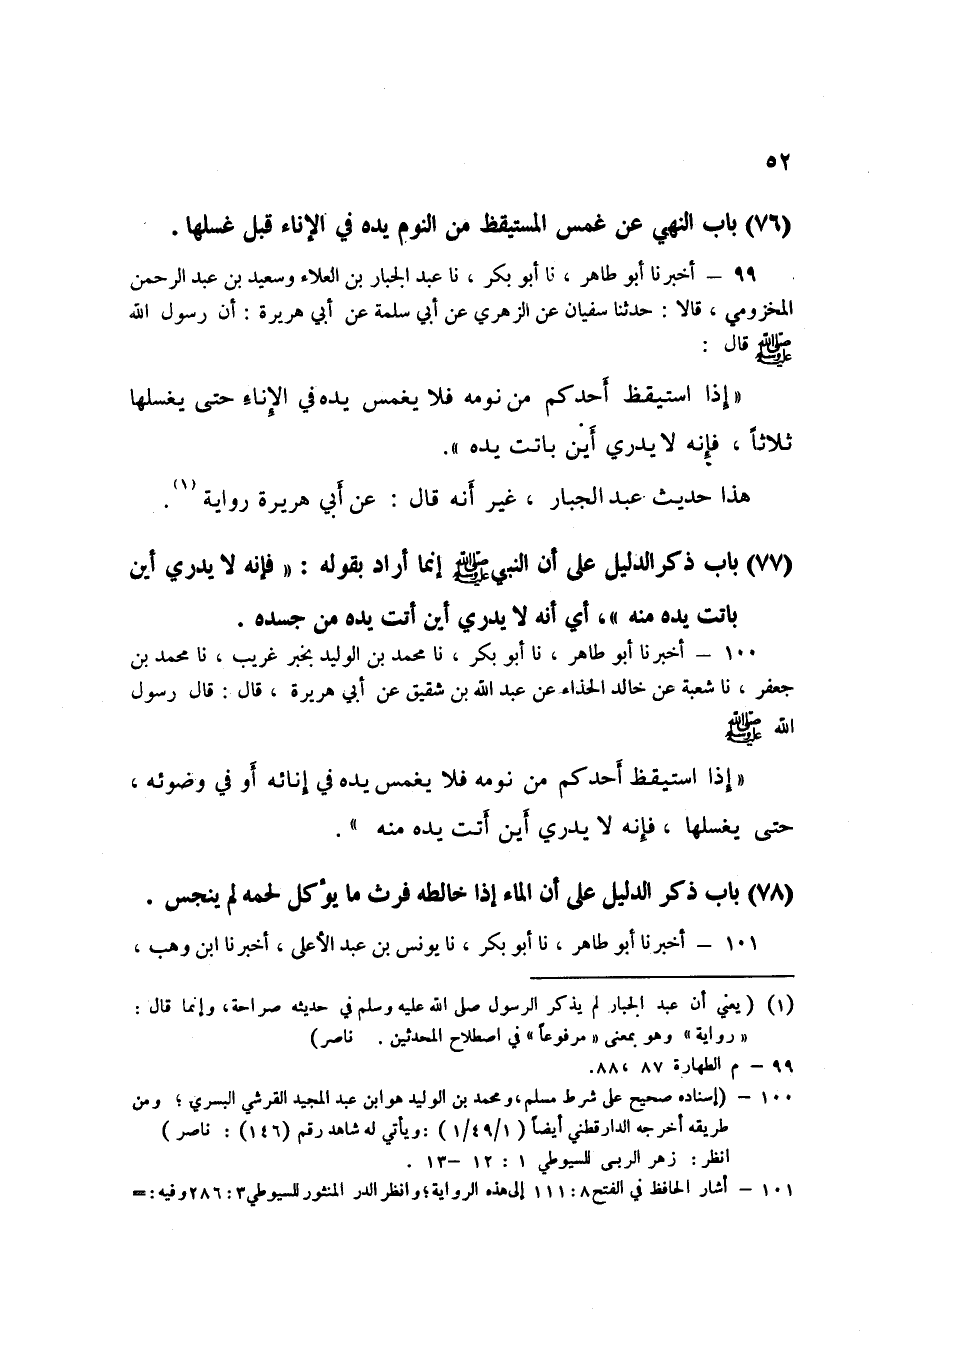 ٥٢
(٧٦) باب النهي عن غمس المستيقظ من النوم يده في الإناء قبل غسلها .
٩٩ – أخبرنا أبو طاهر ، نا أبو بكر ، نا عبد الجبار بن العلاء وسعيد بن عبد الرحمن
المخزومي ، قالا : حدثنا سفيان عن الزهري عن أبي سلمة عن أبي هريرة : أن رسول الله
ﷺ قال :
« إذا استيقظ أحدكم من نومه فلا يغمس يده في الإناء حتى يغسلها
ثلاثاً ، فإنه لا يدري أين باتت يده » .
هذا حديث عبد الجبار ، غير أنه قال : عن أبي هريرة رواية (١) .
(٧٧) باب ذكر الدليل على أن النبي ﷺ إنما أراد بقوله : « فإنه لا يدري أين
باتت يده منه » ، أي أنه لا يدري أين أتت يده من جسده .
١٠٠ – أخبرنا أبو طاهر ، نا أبو بكر ، نا محمد بن الوليد بخبر غريب ، نا محمد بن
جعفر ، نا شعبة عن خالد الحذاء عن عبد الله بن شقيق عن أبي هريرة ، قال : قال رسول
الله ﷺ
« إذا استيقظ أحدكم من نومه فلا يغمس يده في إنائه أو في وضوئه ،
حتى يغسلها ، فإنه لا يدري أين أتت يده منه » .
(٧٨) باب ذكر الدليل على أن الماء إذا خالطه فرث ما يؤكل لحمه لم ينجس .
١٠١ – أخبرنا أبو طاهر ، نا أبو بكر ، نا يونس بن عبد الأعلى ، أخبرنا ابن وهب ،
(١) ( يعني أن عبد الجبار لم يذكر الرسول صلى الله عليه وسلم في حديثه صراحة ، وإنما قال :
« رواية » وهو بمعنى « مرفوعاً » في اصطلاح المحدثين . ناصر )
٩٩ – م الطهارة ٨٧ ، ٨٨ .
١٠٠ – (إسناده صحيح على شرط مسلم ، ومحمد بن الوليد هو ابن عبد المجيد القرشي البسري ؛ ومن
طريقه أخرجه الدارقطني أيضاً ( ١/٤٩/١ ) : ويأتي له شاهد رقم (١٤٦) : ناصر )
انظر : زهر الربى للسيوطي ١ : ١٢ –١٣ .
١٠١ – أشار الحافظ في الفتح ٨ : ١١١ إلى هذه الرواية ؛ وانظر الدر المنثور للسيوطي ٣ : ٢٨٦ وفيه : =